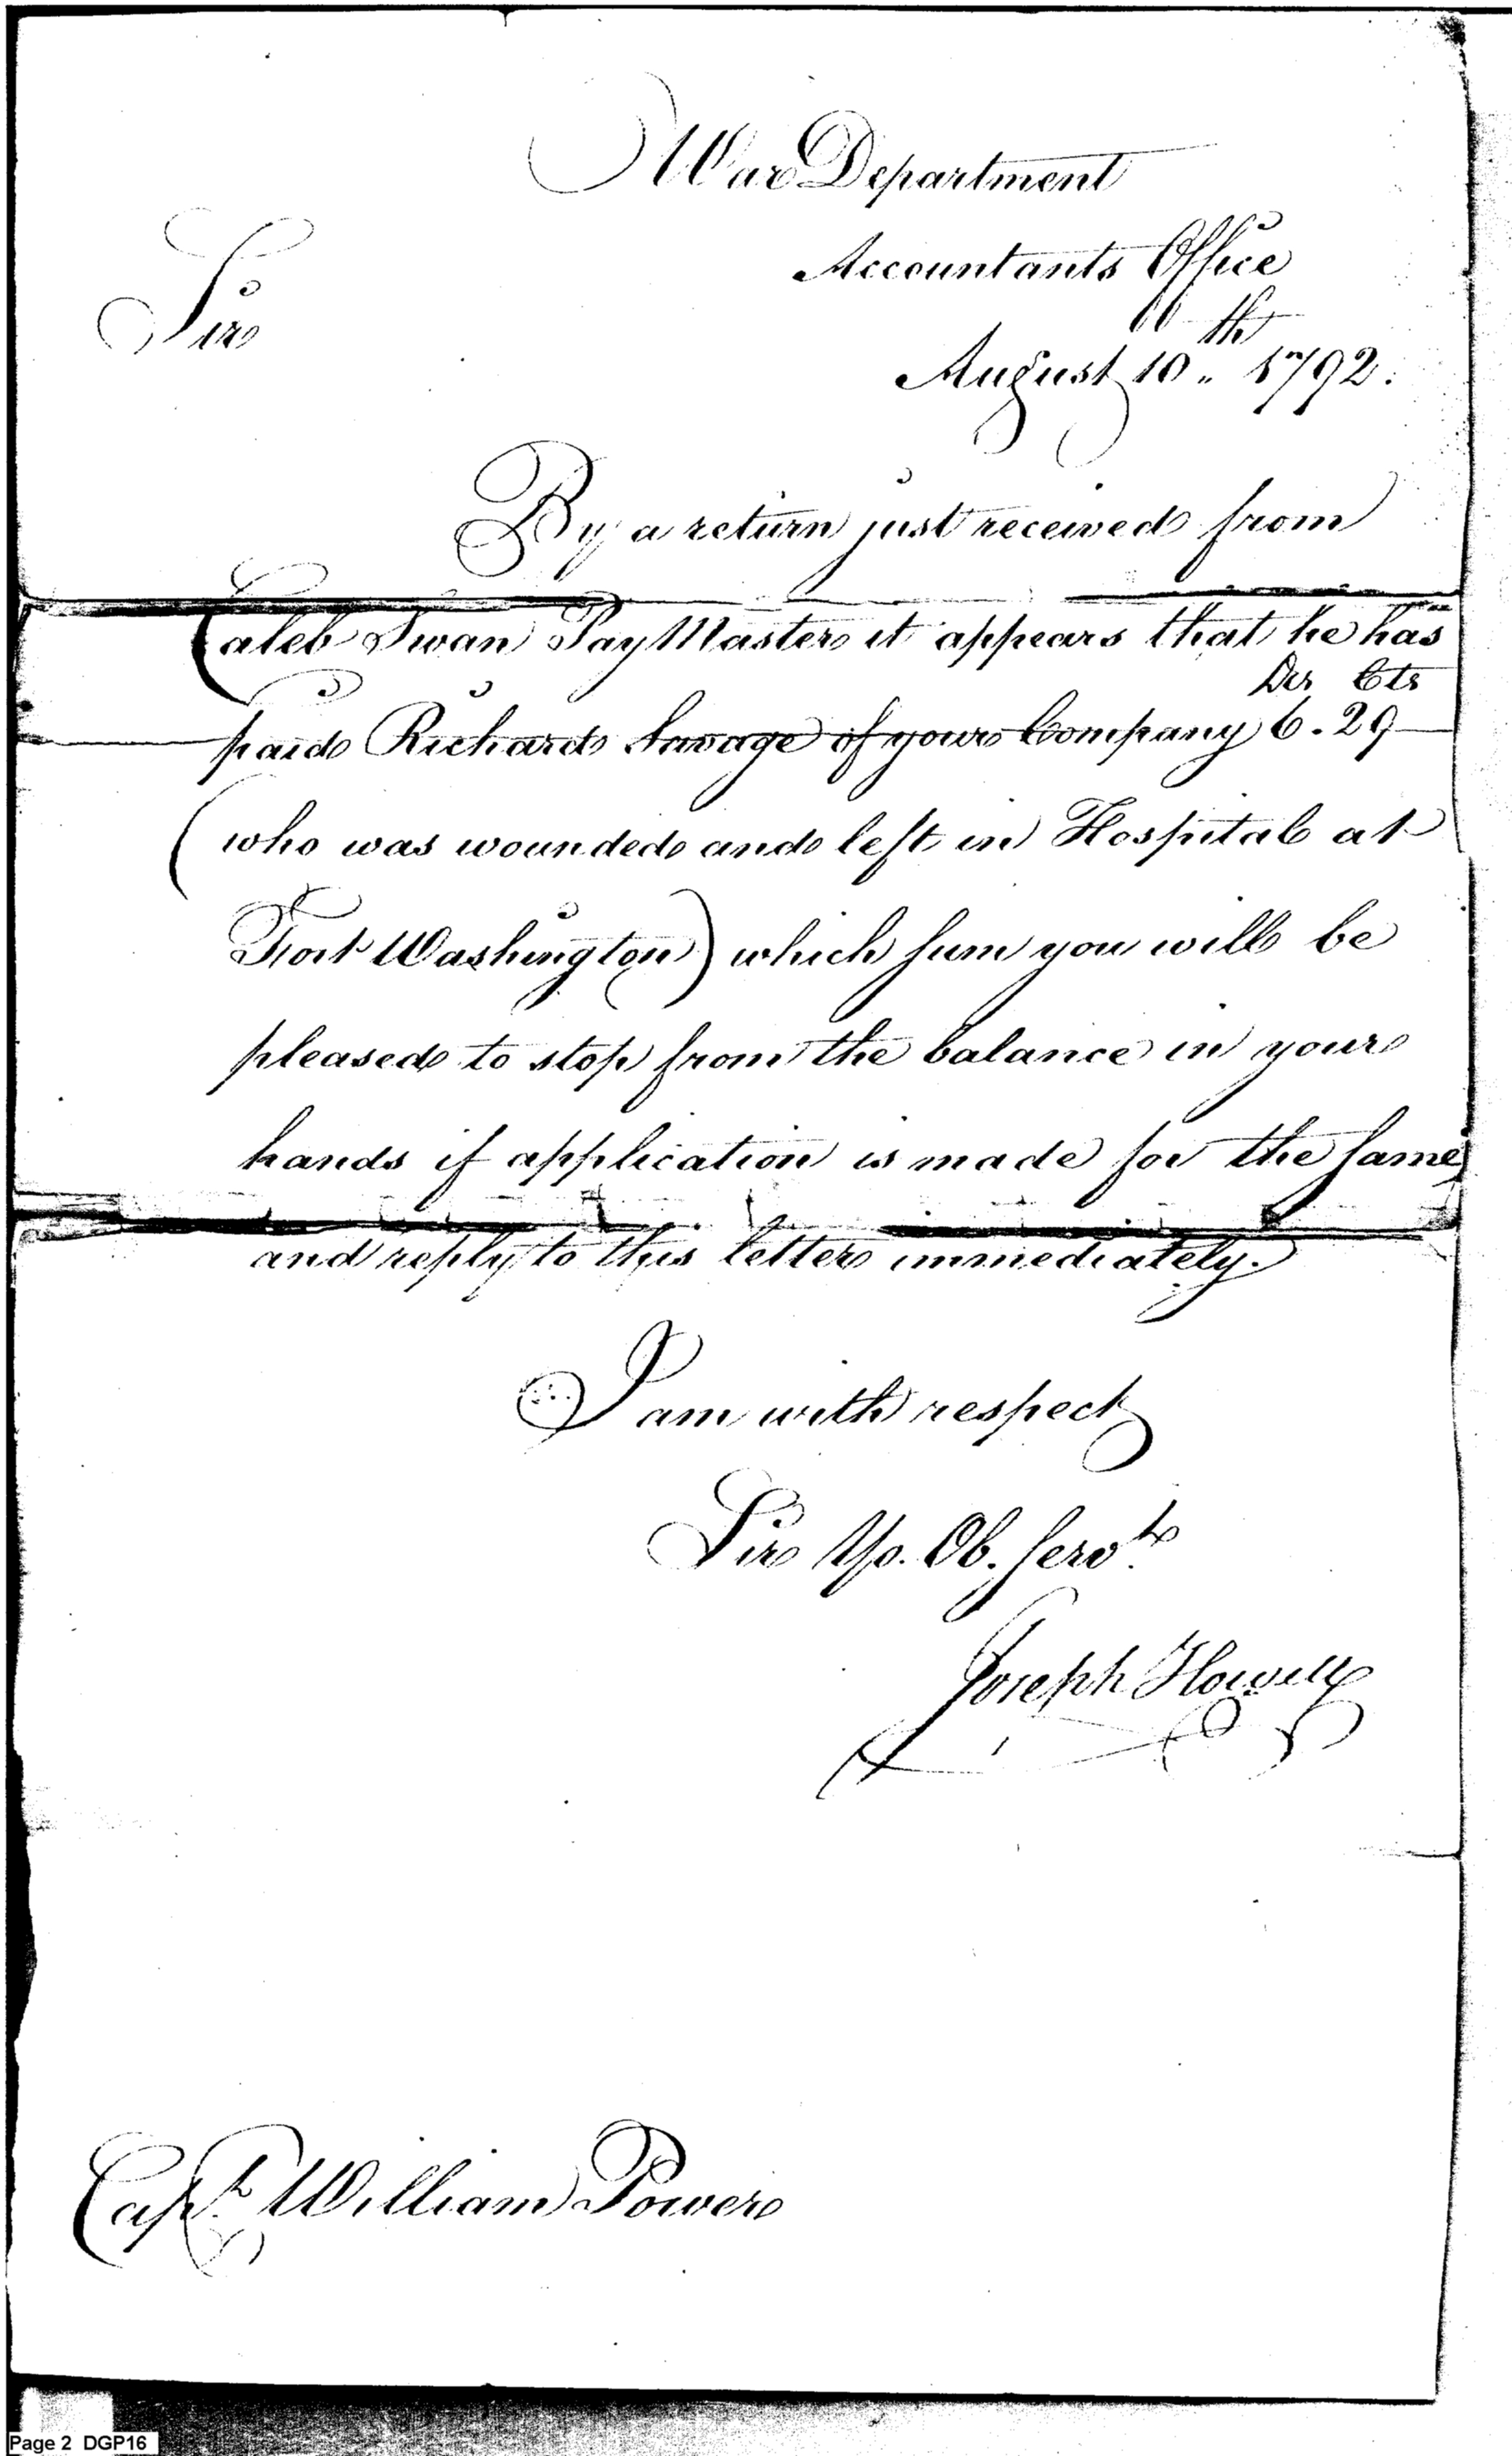 War Department
Accountants Office
Sir
August 10th 1792.
By a return just received from
Caleb Swan PayMaster it appears that he has
Drs Cts
paid Richard Savage of your Company 6.29
(who was wounded and left in Hospital at
Fort Washington) which sum you will be
pleased to stop from the balance in your
hands if application is made for the same
and reply to this letter immediately.
I am with respect
Sir Yr. Ob. Servt.
Joseph Howell
Capt. William Power
Page 2 DGP16